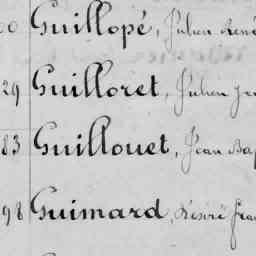 0 Guillopé, Julien René
29 Guilloret, Julien
83 Guillouet, Jean Bap
98 Guimard, Désiré Fra